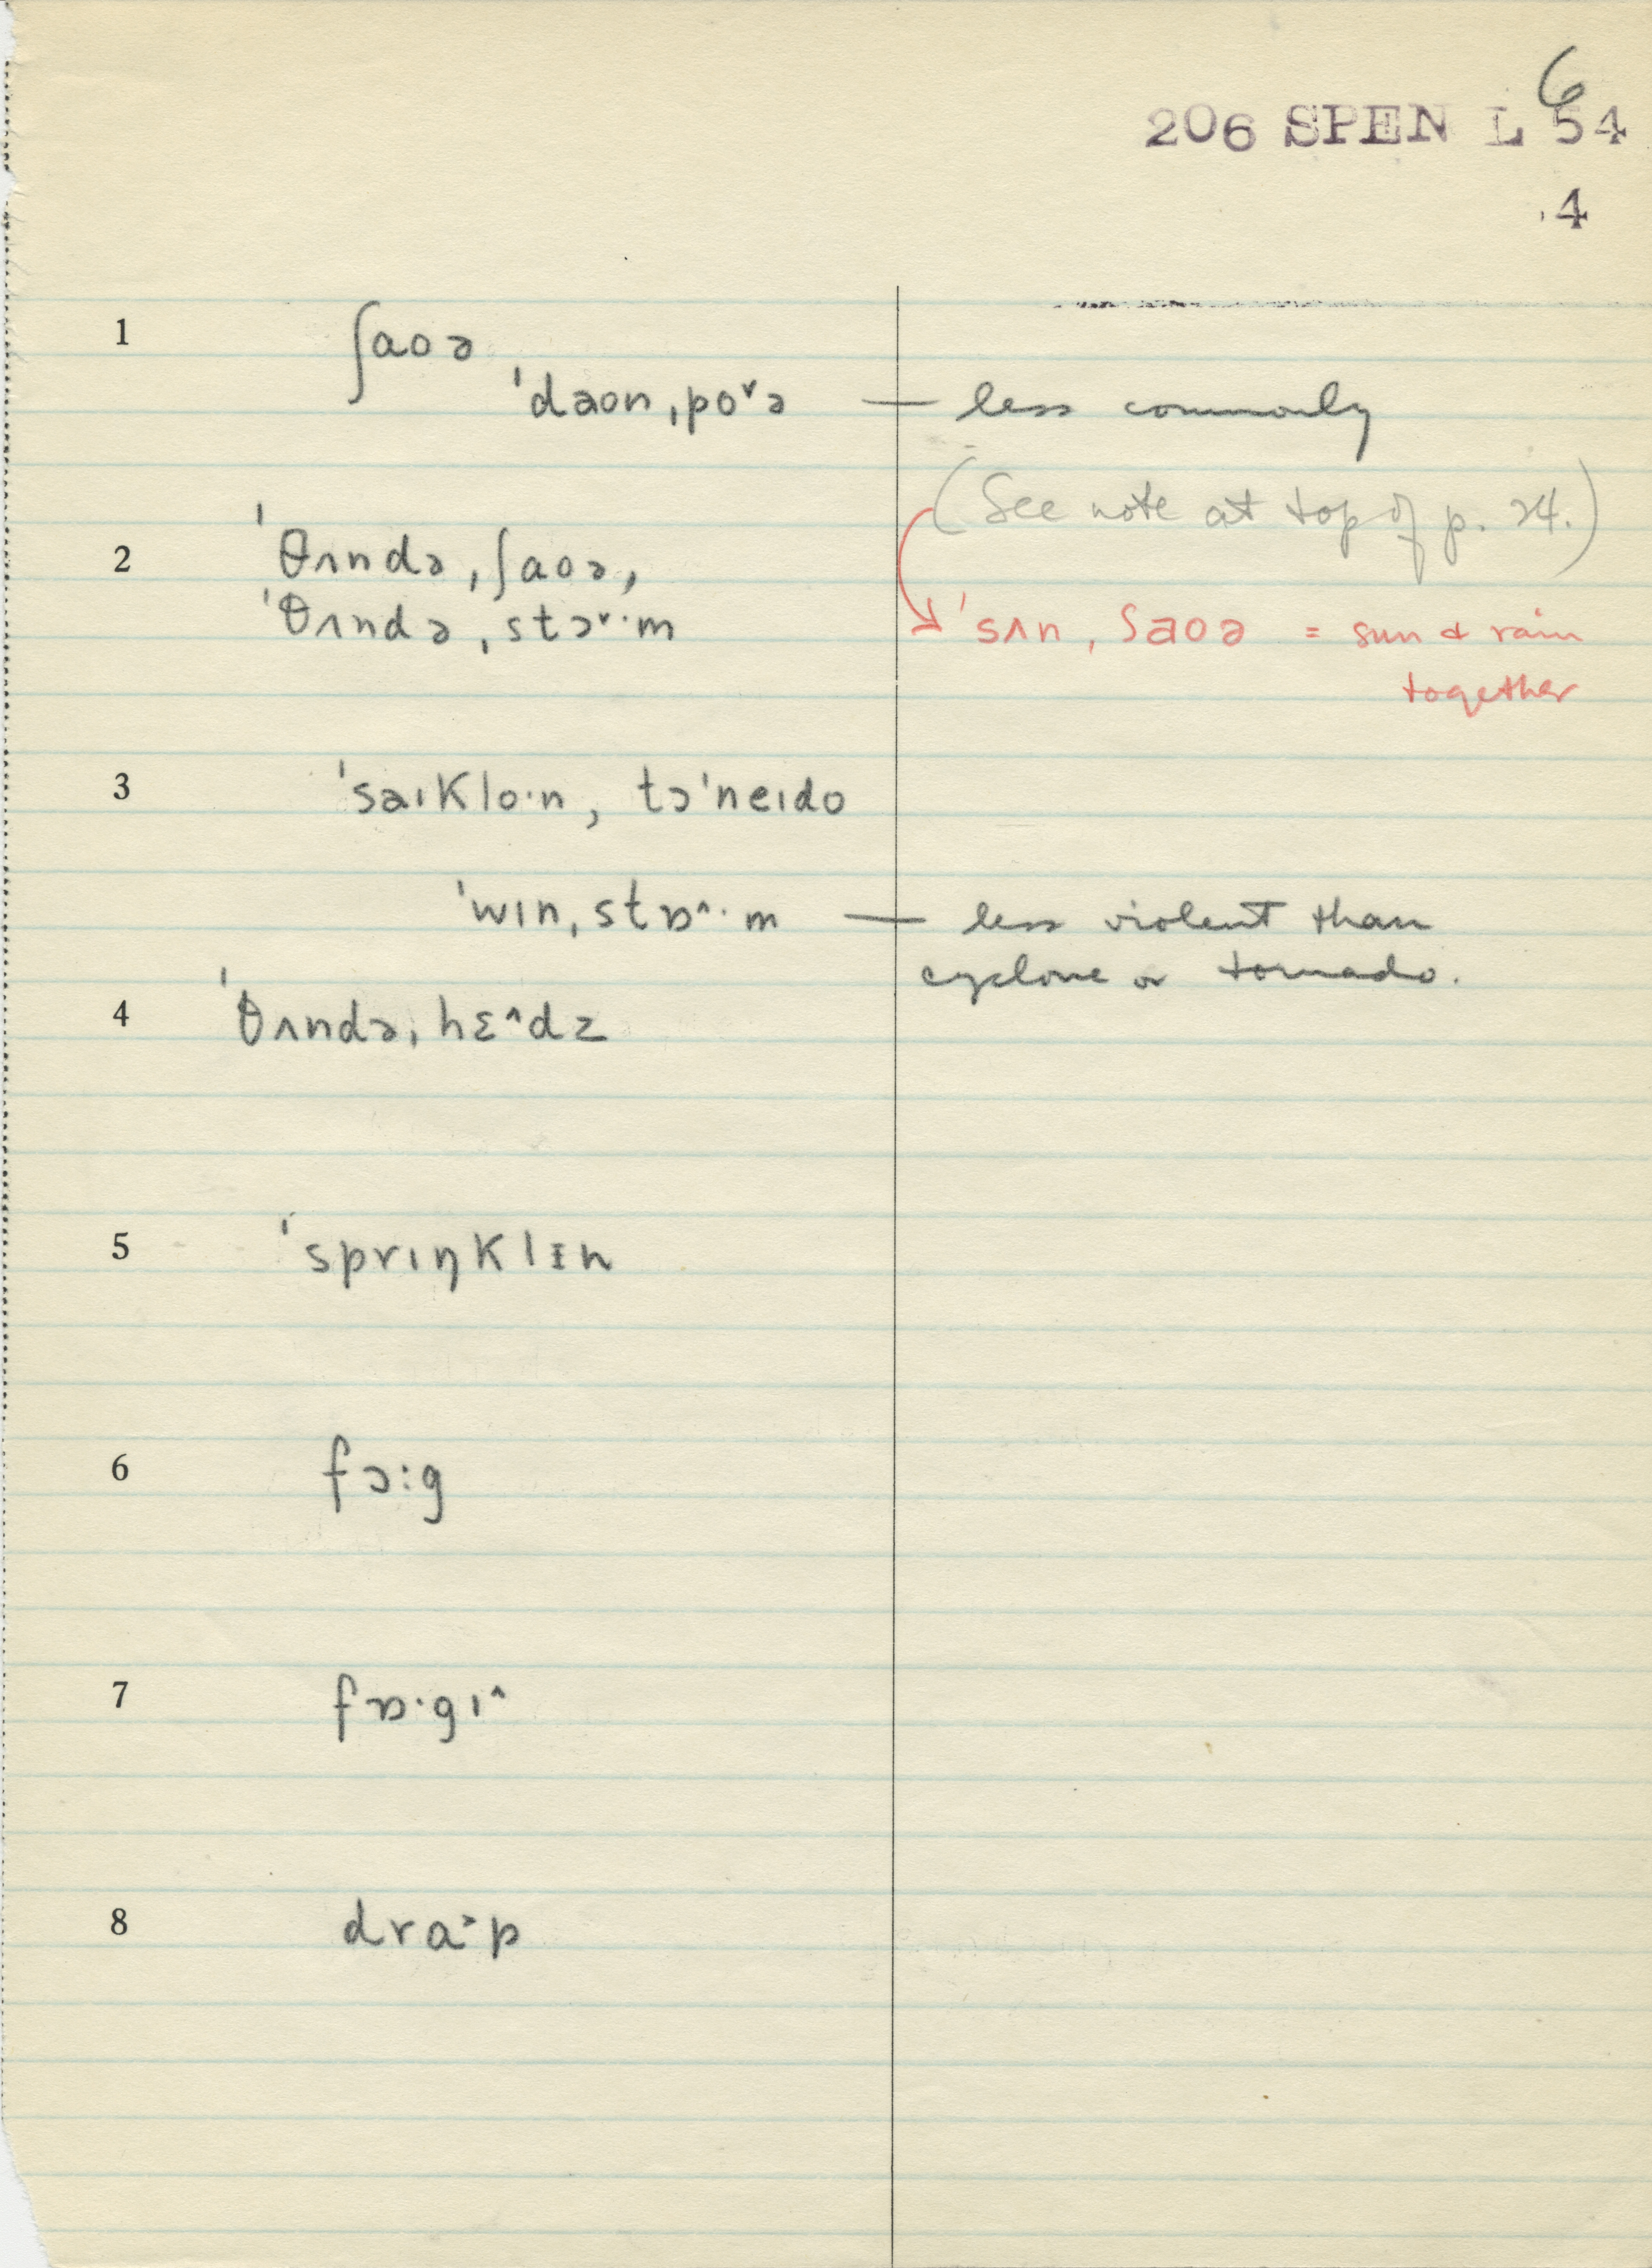 6
206 SPEN L 54
.4
1 ʃaoə
ˈdaon ˌpo˅ə — less commonly
(See note at top of p. 24.)
2 ˈθʌndə ˌʃaoə,
ˈθʌndə ˌstɔ˅·m
ˈsʌn ˌʃaoə = sun & rain
together
3 ˈsaɪklo·n, tɔˈneɪdo
ˈwɪn ˌstɒ^·m — less violent than
cyclone or tornado.
4 ˈθʌndə ˌhɛ^dz
5 ˈsprɪŋklɪn
6 fɔ:g
7 fɒ·gɪ^
8 dra˃·p